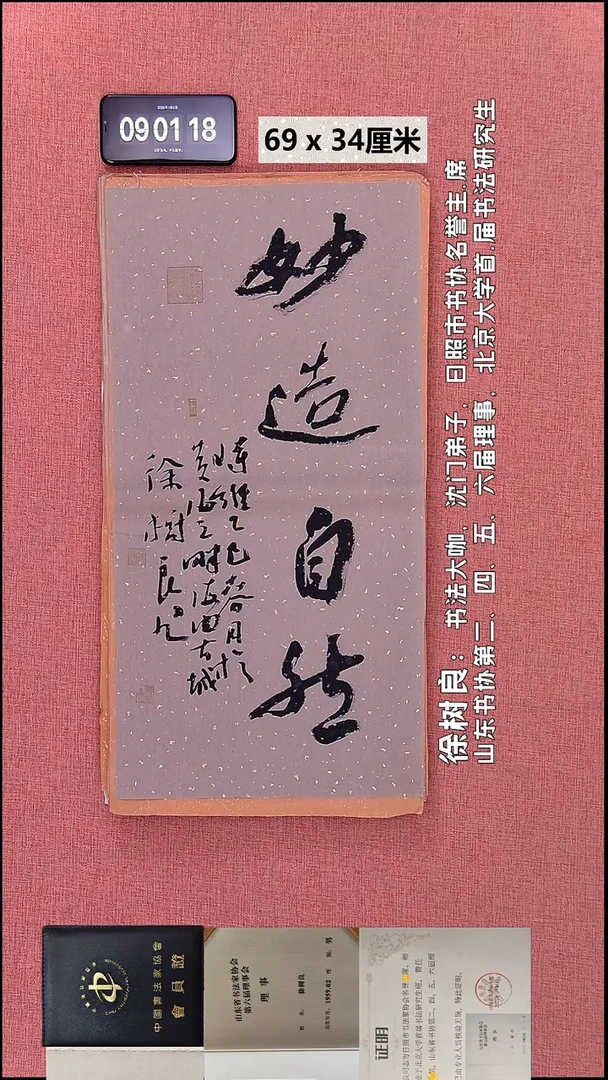 09 01 18
69 x 34厘米
妙造自然
时维乙巳春月于
黄海之畔海曲古城
徐树良
徐树良：书法大咖，沈门弟子，日照市书协名誉主.席
山东书协第二、四、五、六届理事，北京大学首.届书法研究生
中國書法家協會
會員證
山东省书法家协会
第六届理事会
理事
姓名：徐树良
出生年月：1959.02 性别：男
证明